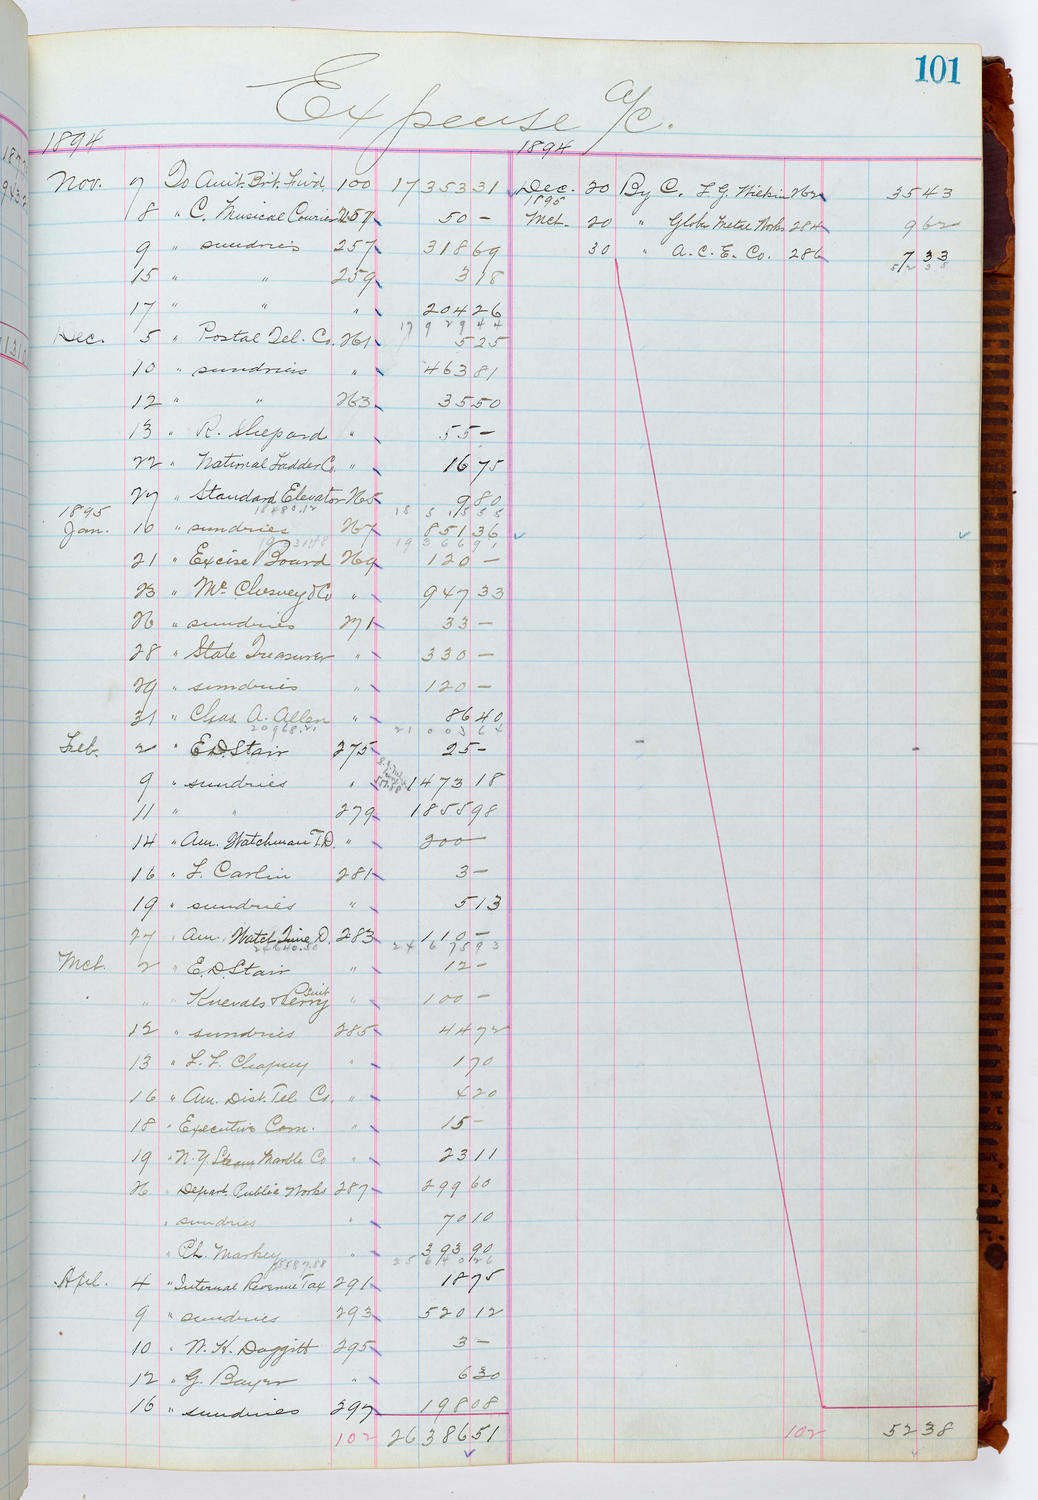 101
Expense a/c.
1894 1894
Nov. 7 To Amt. Brt. Fwd 100 17353 31 Dec. 20 By C. L. G. Wilkin 262 35 43
8 " C. Musical Courier 257 50 – 1895
Mch. 20 " Globe Metal Works 284 9 62
9 " sundries 257 318 69 30 " A. C. E. Co. 286 7 33
15 " " 259 3 18 52 38
17 " " " 204 26
17929 44
Dec. 5 " Postal Tel. Co. 261 5 25
10 " sundries " 463 81
12 " " 263 35 50
13 " R. Shepard " 55 –
22 " National Ladder Co. " 16 75
27 " Standard Elevator 265 9 80
1895 18480.12 18515 55
Jan. 10 " sundries 267 851 36
19366 91
21 " Excise Board 269 120 –
23 " Mc. Chesney & Co " 947 33
26 " sundries 271 33 –
28 " State Treasurer " 330 –
29 " sundries " 120 –
31 " Chas. A. Allen " 86 40
20968.21 21003 64
Feb. 2 " E. D. Stair 275 25 –
9 " sundries " 1473 18
11 " " 279 1855 98
14 " Am. Watchman T. D. " 200 –
16 " L. Carlin 281 3 –
19 " sundries " 5 13
27 " Am. Watch Time D. 283 110 –
24640.50 24675 93
Mch. 2 " E. D. Stair " 12 –
" " Knevals & Perry Suit " 100 –
12 " sundries 285 44 72
13 " L. L. " 1 70
16 " Am. Dist. Tel. Co. " 4 20
18 " Executive Com. " 15 –
19 " N. Y. Steam Marble Co " 23 11
26 " Depart. Public Works 287 299 60
" sundries " 70 10
" Ph. Markey " 393 90
25587.88 25640 26
Apl. 4 " Internal Revenue Tax 291 18 75
9 " sundries 293 520 12
10 " N. H. Daggitt 295 3 –
12 " G. Bayer " 6 30
16 " sundries 297 198 08
102 26386 51 102 52 38